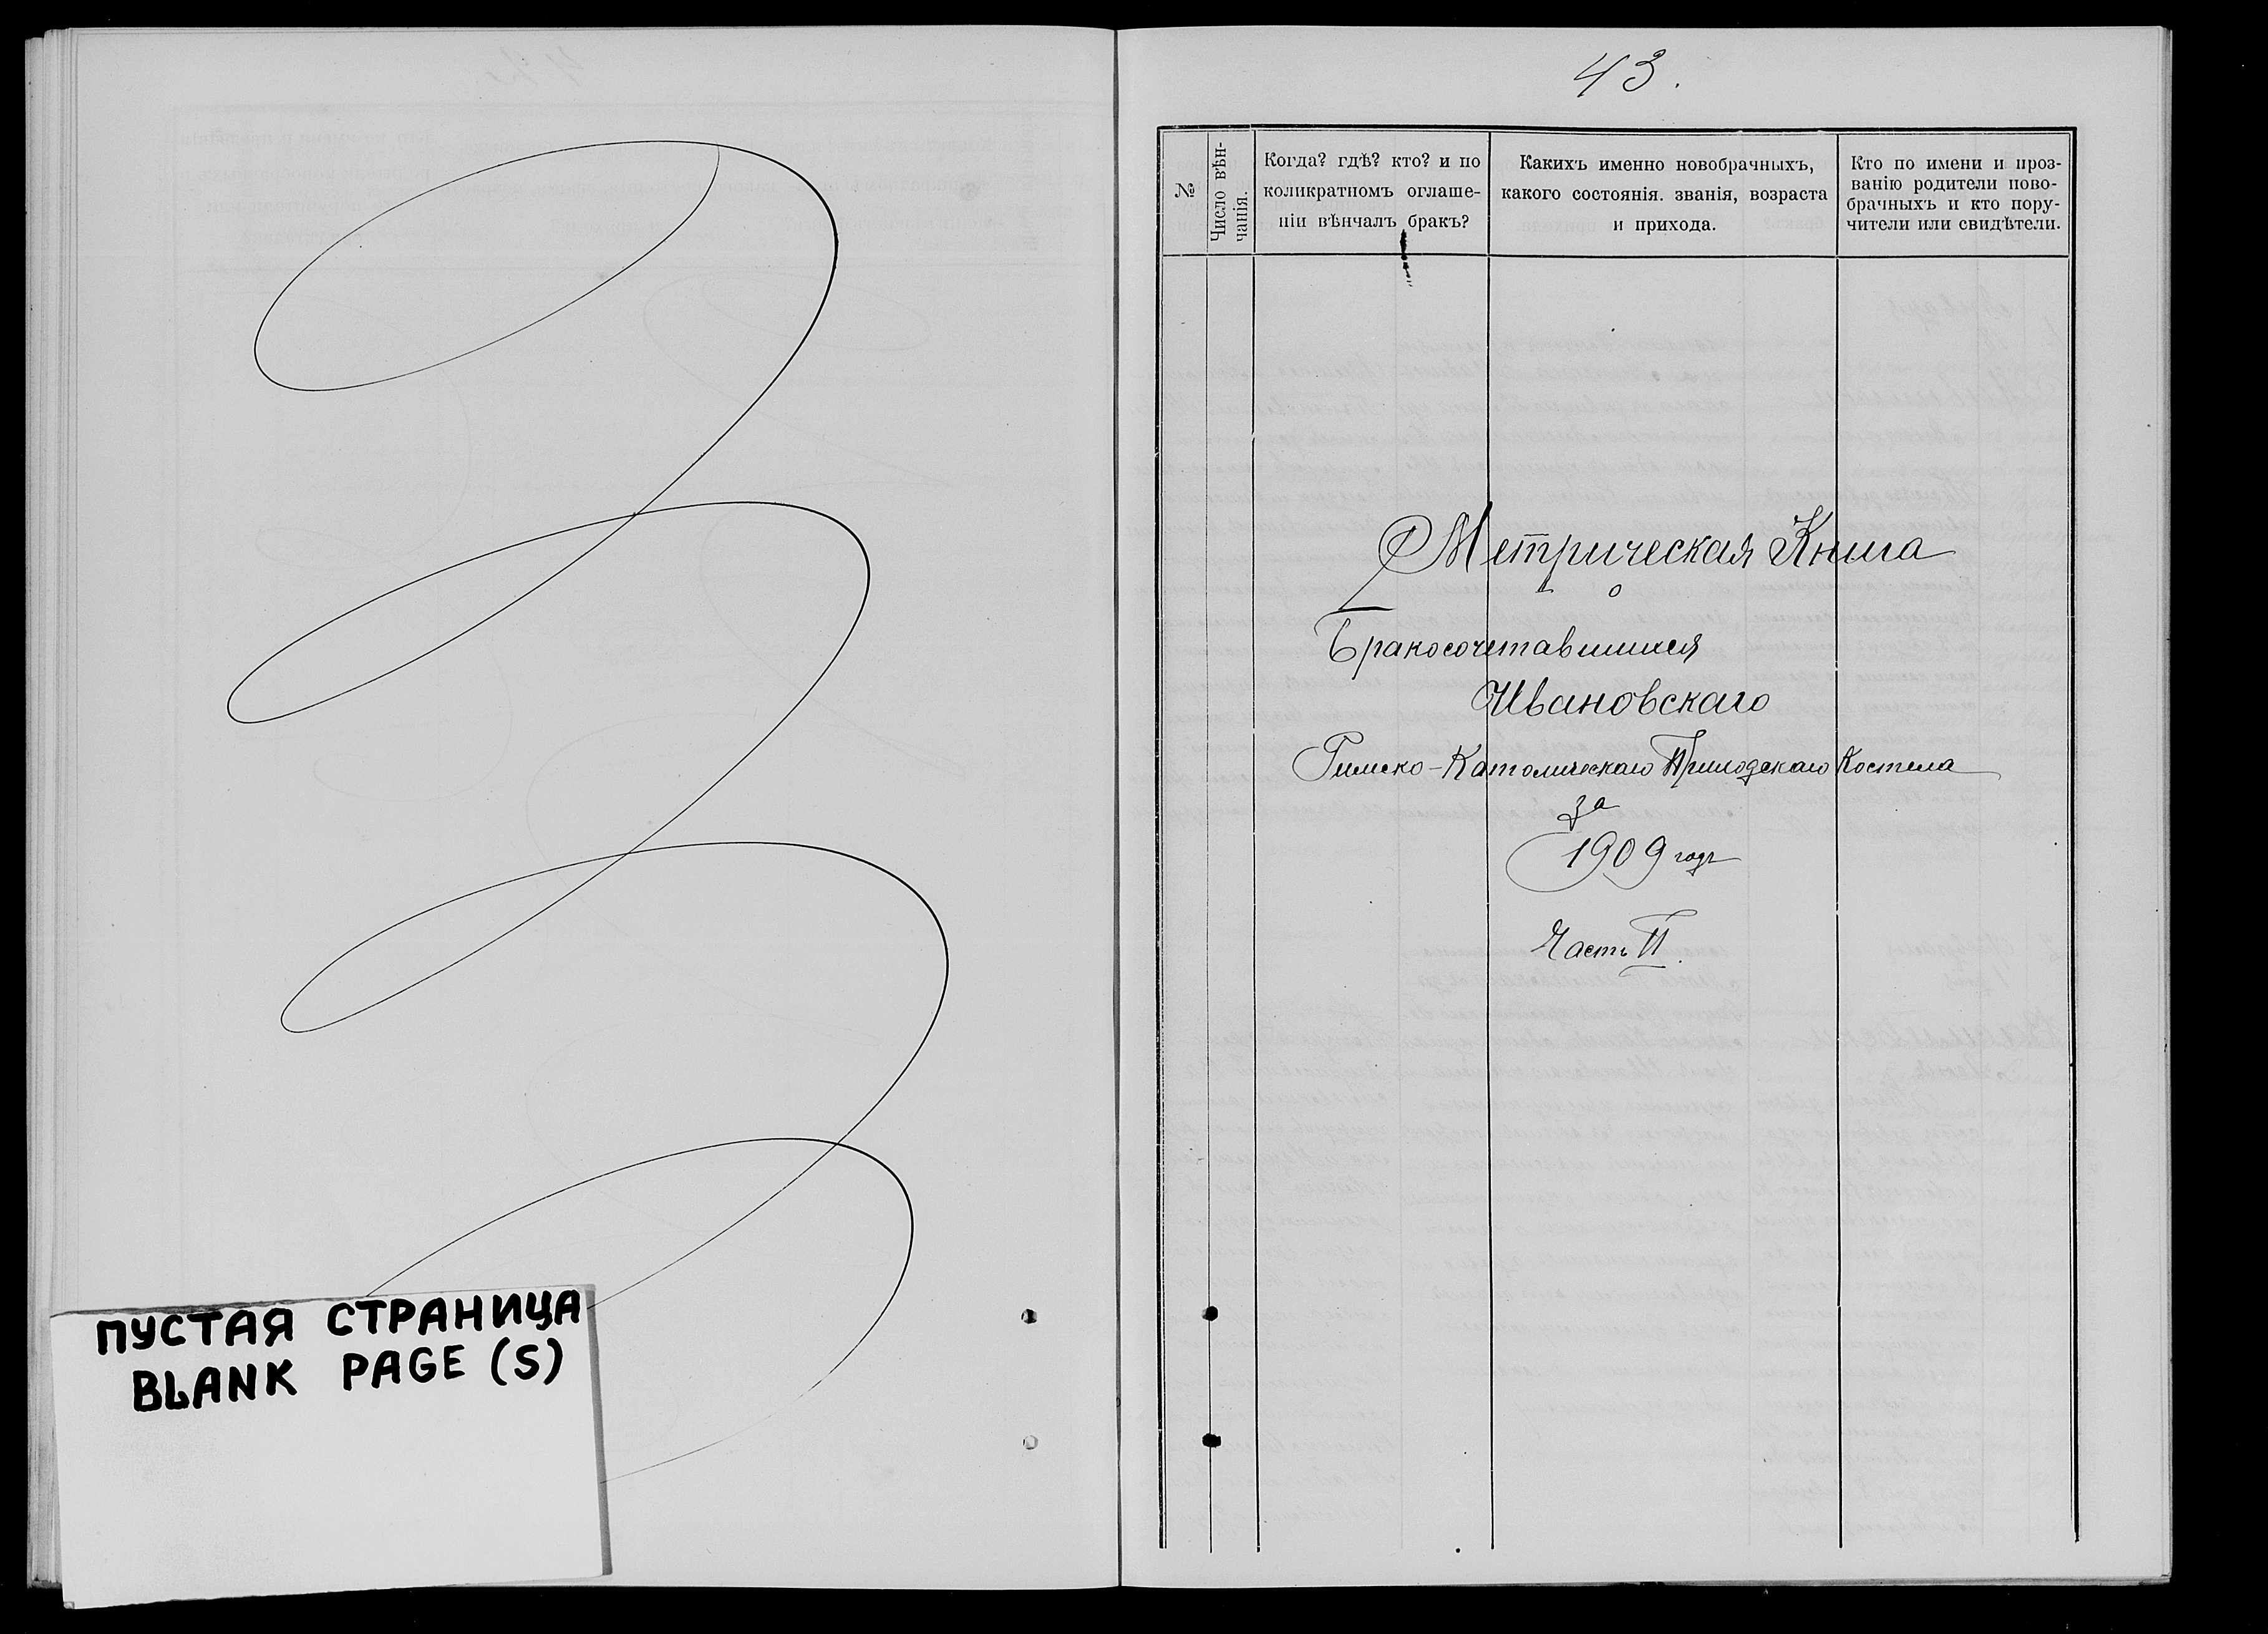 ПУСТАЯ СТРАНИЦА
BLANK PAGE (S)
43.
№
Число вѣн-
чанія.
Когда? гдѣ? кто? и по
коликратномъ оглаше-
ніи вѣнчалъ бракъ?
Какихъ именно новобрачныхъ,
какого состоянія. званія, возраста
и прихода.
Кто по имени и проз-
ванію родители ново-
брачныхъ и кто пору-
чители или свидѣтели.
Метрическая Книга
о
Бракосочетавшихся
Ивановскаго
Римско-Католическаго Приходскаго Костела
за
1909 годъ
Часть II.